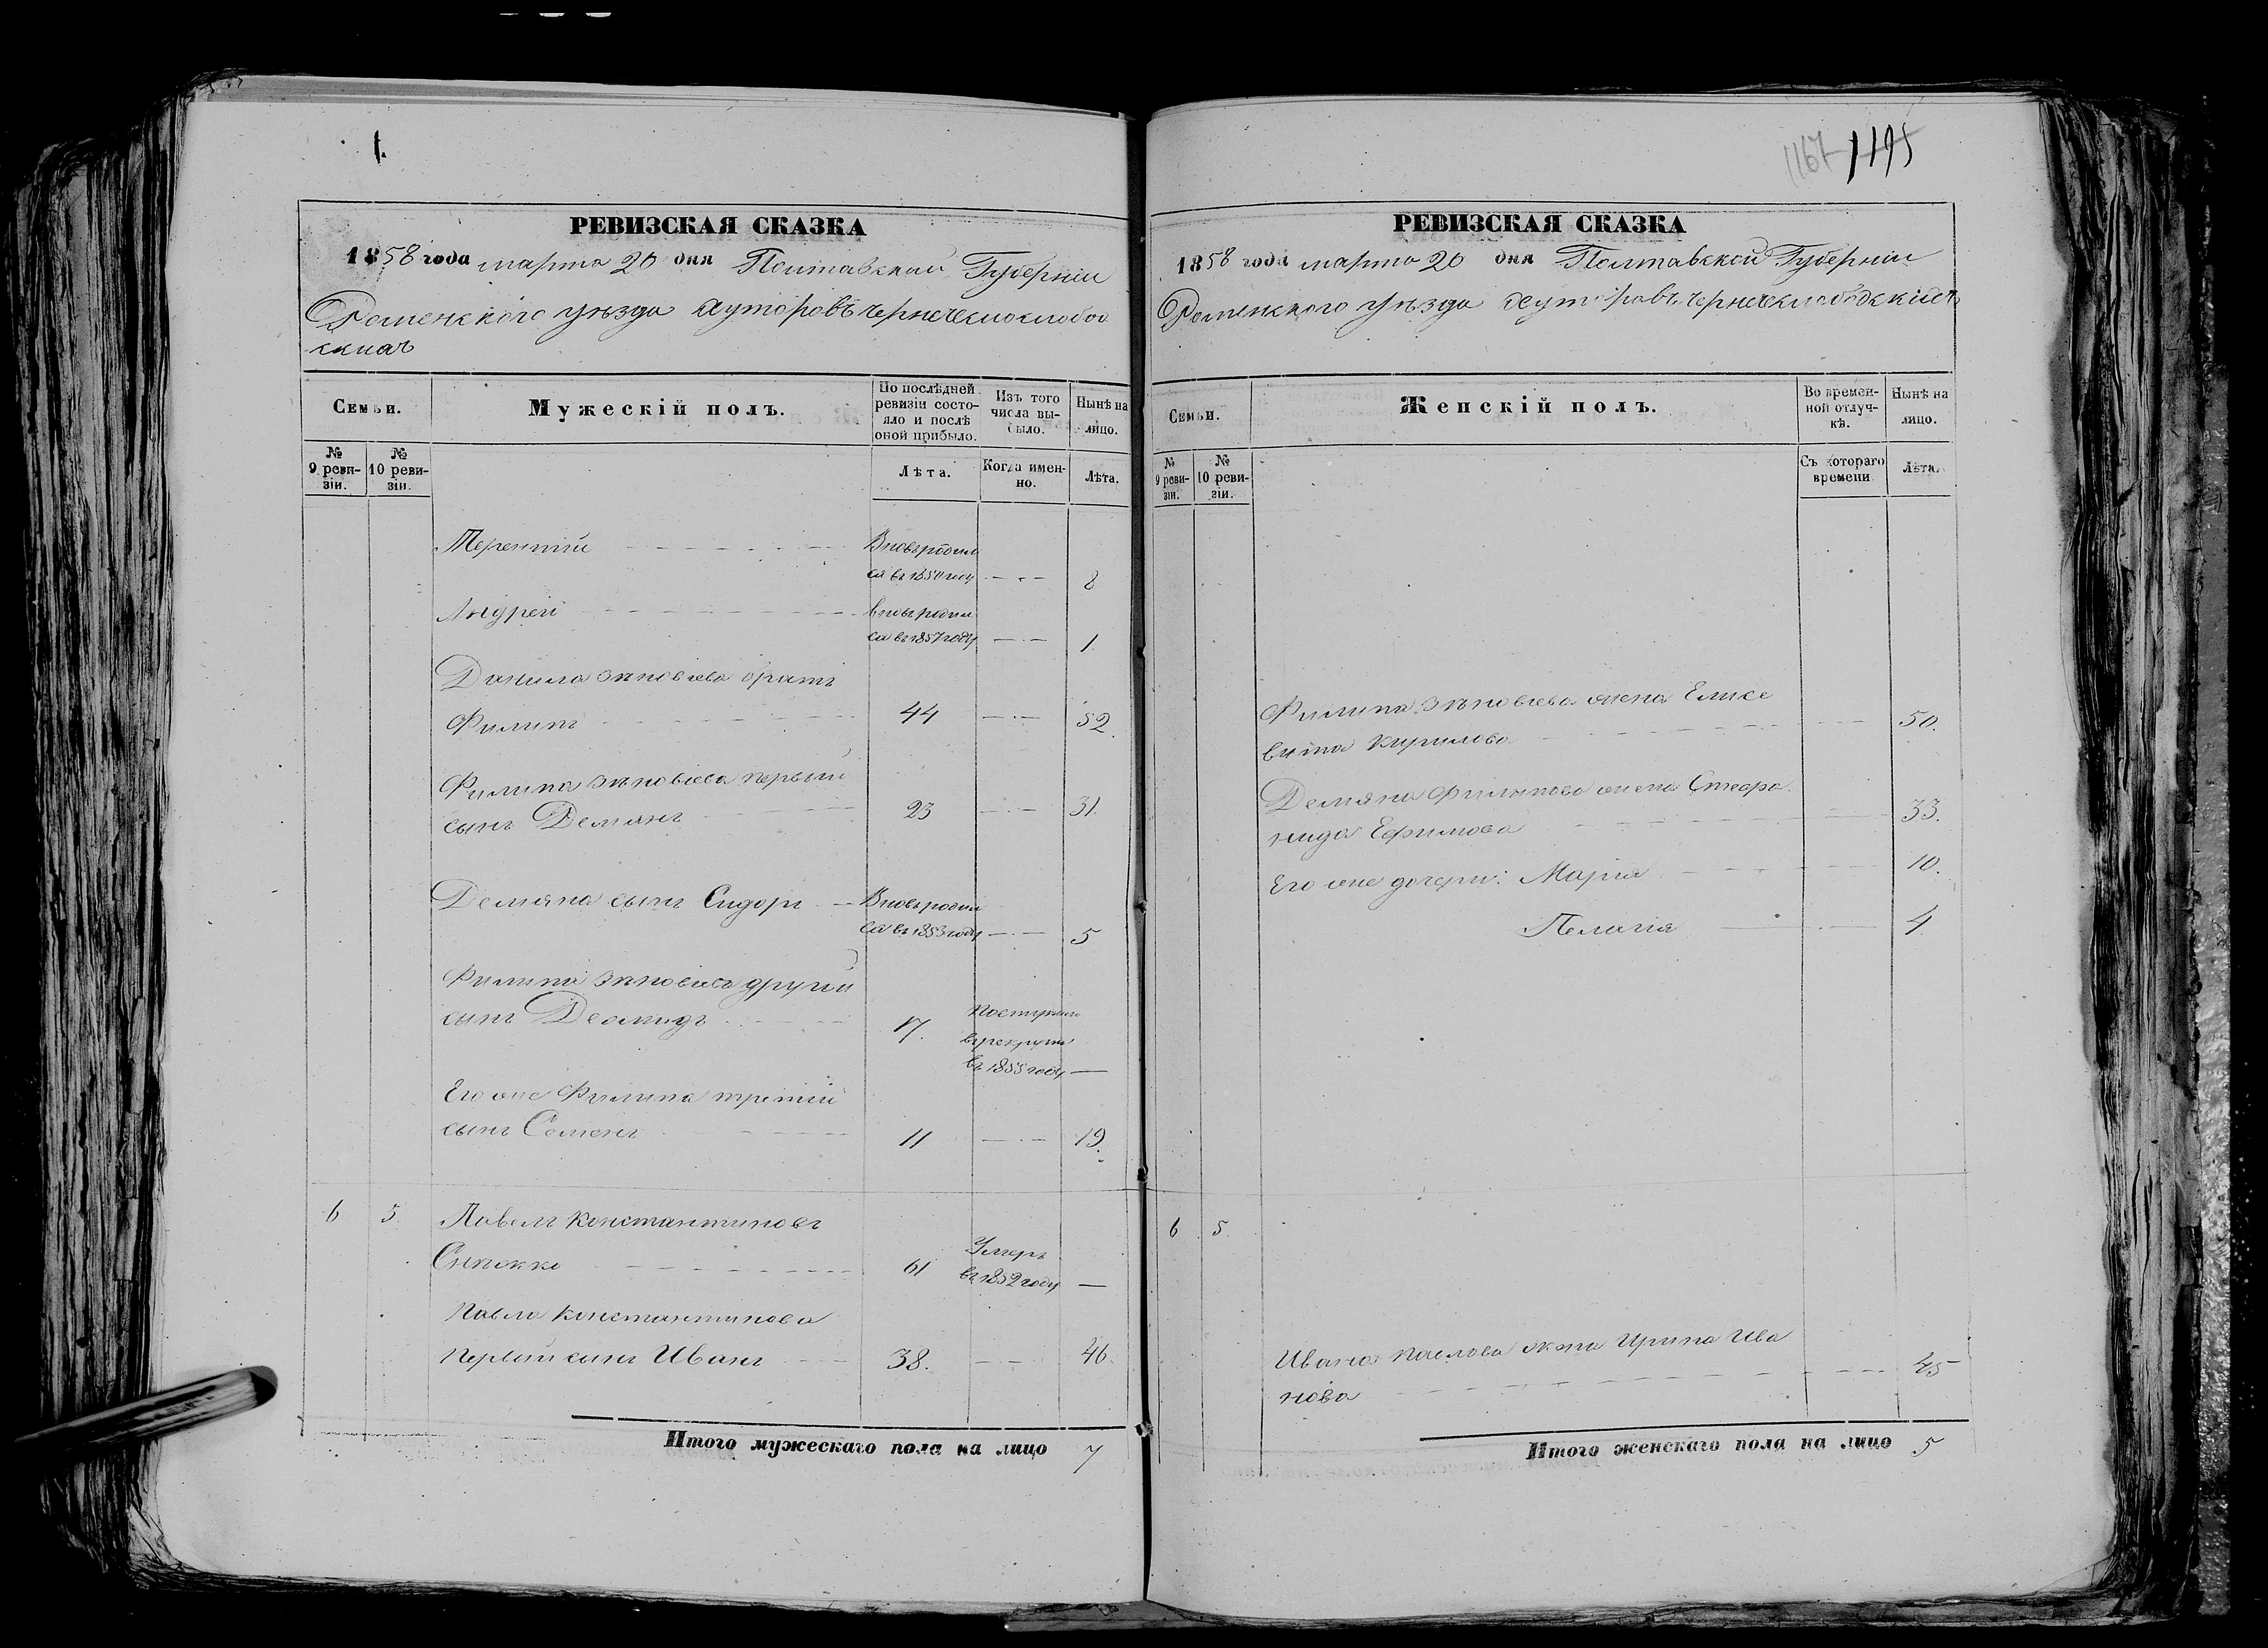 1.
РЕВИЗСКАЯ СКАЗКА
1858 года марта 20 дня Полтавской Губерніи
Роменского уѣзда хуторовъ чернечеслобод
скихъ
Семьи.
Мужескій полъ.
По послѣдней ревизіи состояло и послѣ оной прибыло.
Изъ того числа выбыло.
Нынѣ на лицо.
№ 9 ревизіи.
№ 10 ревизіи.
Лѣта.
Когда именно.
Лѣта.
Терентій
Вновь родил
ся въ году 8
Андрей
вновь родил
ся въ 1857 году 1.
Данила Зѣновіева братъ
Филипъ 44 52.
Филипа Зѣновіева первый
сынъ Демянъ 23 31.
Демяна сынъ Сидоръ
Вновь родил
ся въ 1853 году 5
Филипа Зѣновіева другий
сынъ Деомидъ 17.
поступилъ
въ рекруты
въ 1855 году —
Его же Филипа третій
сынъ Семенъ 11 19.
6 5. Павелъ Константиновъ
61
Умеръ
въ 1852 году —
Павла Константинова
первый сынъ Иванъ 38. 46.
Итого мужескаго пола на лицо 7
1167 1195
РЕВИЗСКАЯ СКАЗКА
1858 года марта 20 дня Полтавской Губерніи
Роменского уѣзда хуторовъ чернечеслободскихъ
Семьи.
Женскій полъ.
Во временной отлучкѣ.
Нынѣ на лицо.
№ 9 ревизіи.
№ 10 ревизіи.
Съ котораго времени
Лѣта.
Филипа Зѣновіева жена Елисе
вита Кирилова 50.
Демяна Филипова жена Стефа
нида Ефимова 33.
Его же дочери: Марія 10.
Пелагія 4
6 5.
Ивана Павлова жена Ирина Ива
нова 45
Итого женскаго пола на лицо 5